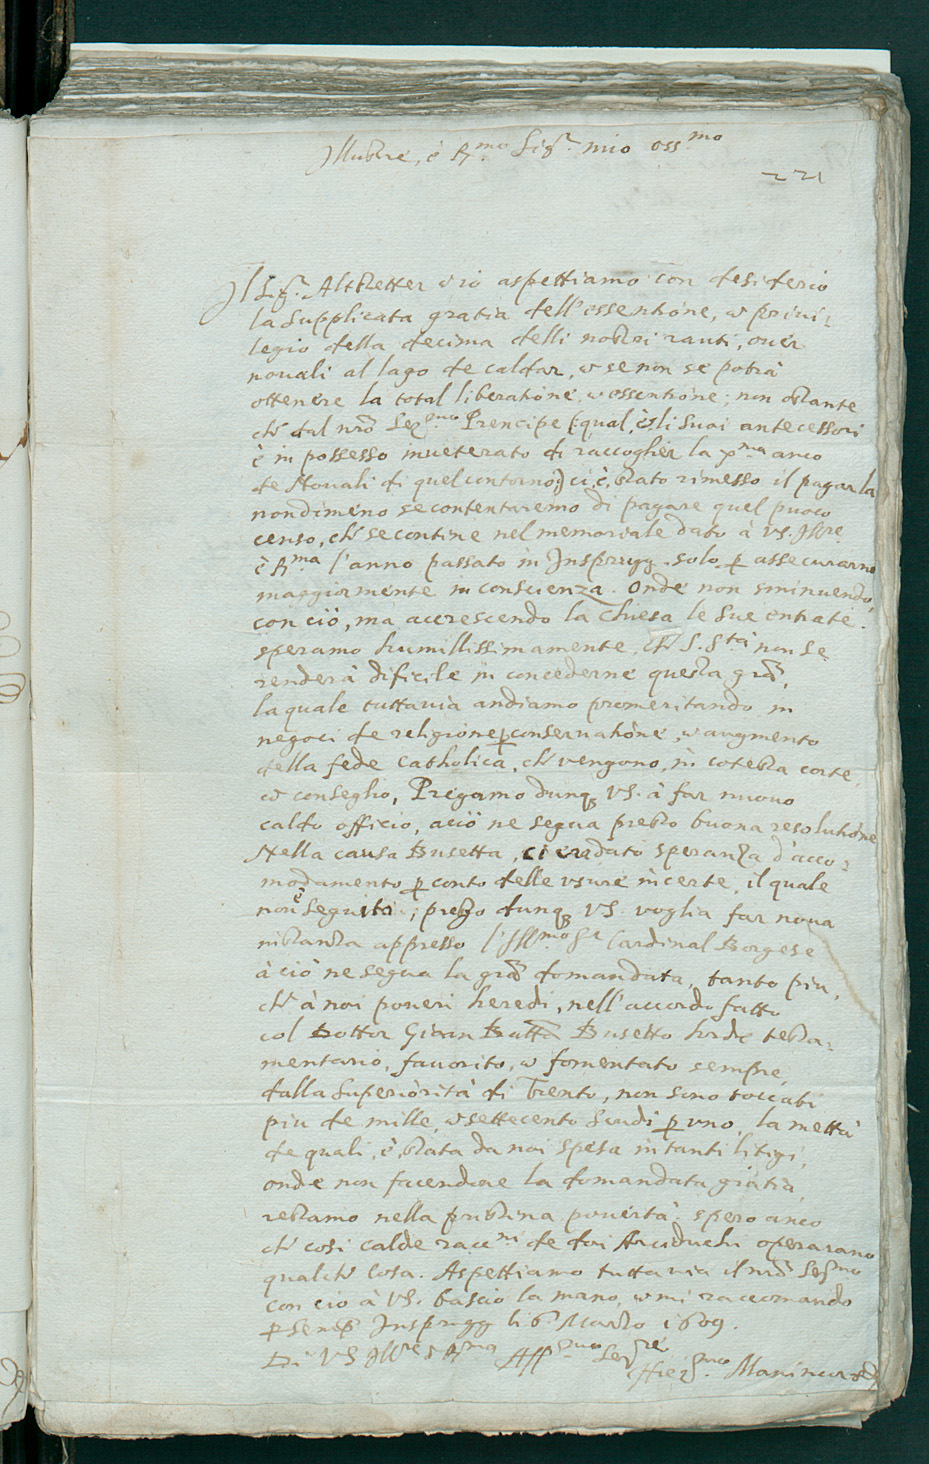 Illustre, è R.mo Sig.r mio oss.mo
221
Il Sig.r Altstetter et io aspettiamo con desiderio
la supplicata gratia dell'essentione, et privi-
legio della decima delli nostri ranti, over
novali al lago de Caldar, et se non se potrà
ottenere la total liberatione, et essentione; non ostante
ch' dal nrõ Ser.mo Prencipe (:qual, è li suoi antecessori
è in possesso inveterato di raccoglier la x.ma anco
de Novali di quel contorno:) ci è stato rimesso il pagarla
nondimeno se contentaremo di pagare quel puoco
censo, ch' se contine nel memoriale dato à VS. Ill.re
è R.ma l'anno passato in Insprugg, solo p assecurarne
maggiormente in conscienza. Onde non sminuendo,
con ciò, mà accrescendo la chiesa le sue entrate.
speramo humillissimamente, ch' S. S.tà non se
renderà dificile in concederne questa grã,
la quale tuttavia andiamo promeritando in
negoci de religione p conservatione, et augmento
della fede Catholica, ch' vengono, in cotesta corte,
et conseglio, Pregamo dunq; VS. à far nuovo
caldo officio, aciò ne segua presto buona resolutione
Nella causa Busetta, ci era dato speranza d'acco-
modamento p conto delle usure incerte, il quale
non è seguito; prego dunq; VS. voglia far nova
instanza appresso l'Ill.mo S.r Cardinal Borgese
à ciò ne segua la grã domandata, tanto piu,
ch' à noi poveri heredi, nell'accordo fatto
col Dottor Gioan Batta Busetto herede testa-
mentario, favorito, et fomentato sempre,
dalla superiorità di Trento, non sono toccati
piu de mille, et settecento scudi p uno, la mettà
de quali, è stata da noi spesa in tanti litigi,
onde non facendose la domandata gratia,
restamo nella pristina povertà, spero anco
ch' cosi calde racc.ni de doi Arciduchi operarano
qualche cosa. Aspettiamo tuttavia il nrõ Ser.mo
con ciò à VS. bascio la mano, et mi raccomando
p semp. Insprugg li 6 Marzo 1609.
Di VS Ill.re e R.ma Aff.mo Ser.re
Hier.mo Manincor